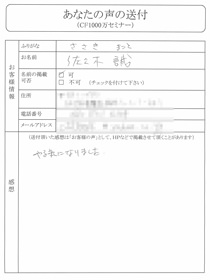 あなたの声の送付
(CF1000万セミナー)
お客様情報
ふりがな
ささき
お名前
佐々木
名前の掲載
可否
☑ 可
□ 不可 (チェックを付けて下さい)
住所
電話番号
メールアドレス
(送付頂いた感想は「お客様の声」として、HPなどで掲載させて頂くことがあります)
感想
やる気になりました